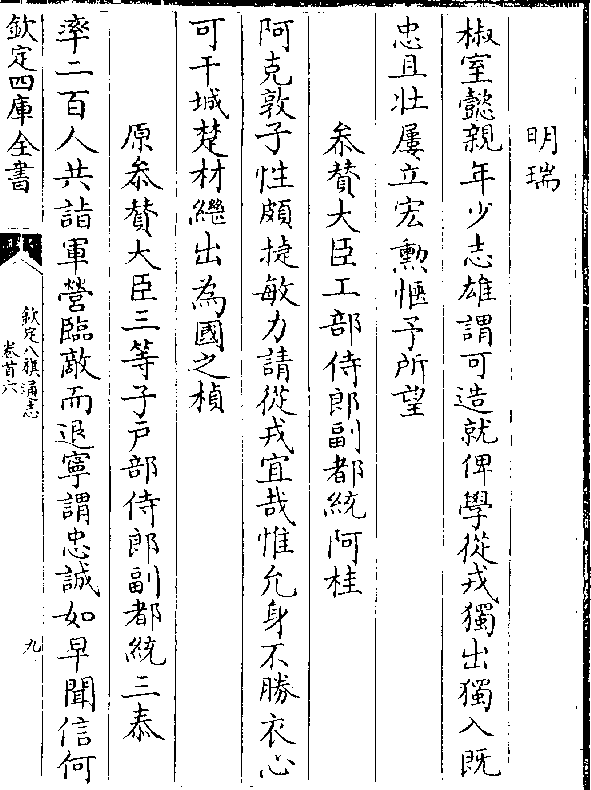 明瑞
椒室懿親年少志雄謂可造就俾學從戎獨出獨入既
忠且壯屢立宏勲愜予所望
叅賛大臣工部侍郎副都統阿桂
阿克敦子性頗捷敏力請從戎宜哉惟允身不勝衣心
可干城楚材繼出為國之楨
原叅賛大臣三等子戶部侍郎副都統三泰
率二百人共詣軍營臨敵而退寧謂忠誠如早聞信何
欽定四庫全書
欽定八旗通志
卷首六
九